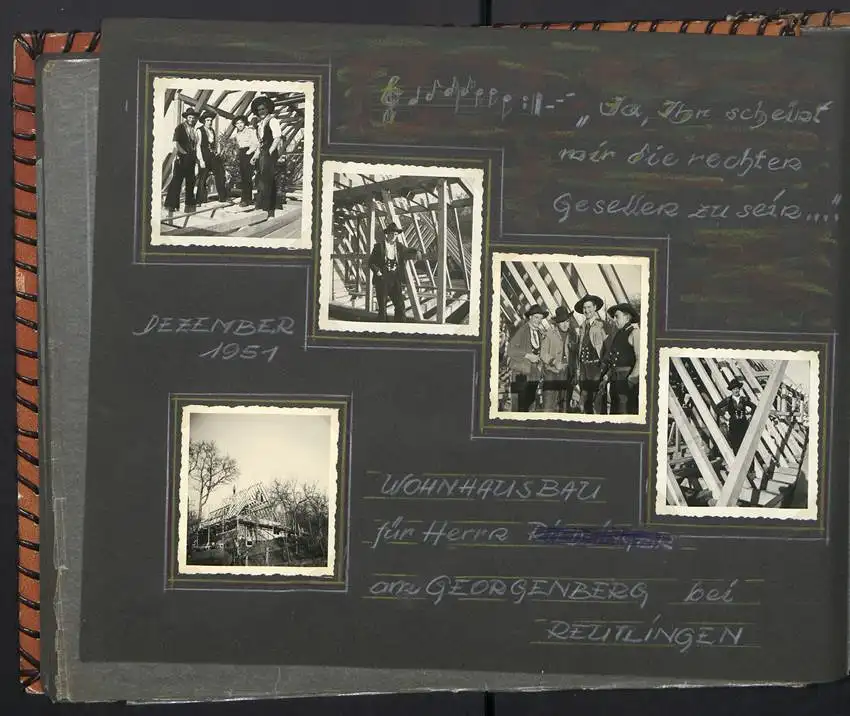 „Ja, Ihr scheint
mir die rechten
Gesellen zu sein...!"
DEZEMBER
1951
WOHNHAUSBAU
für Herrn
am GEORGENBERG bei
REUTLINGEN